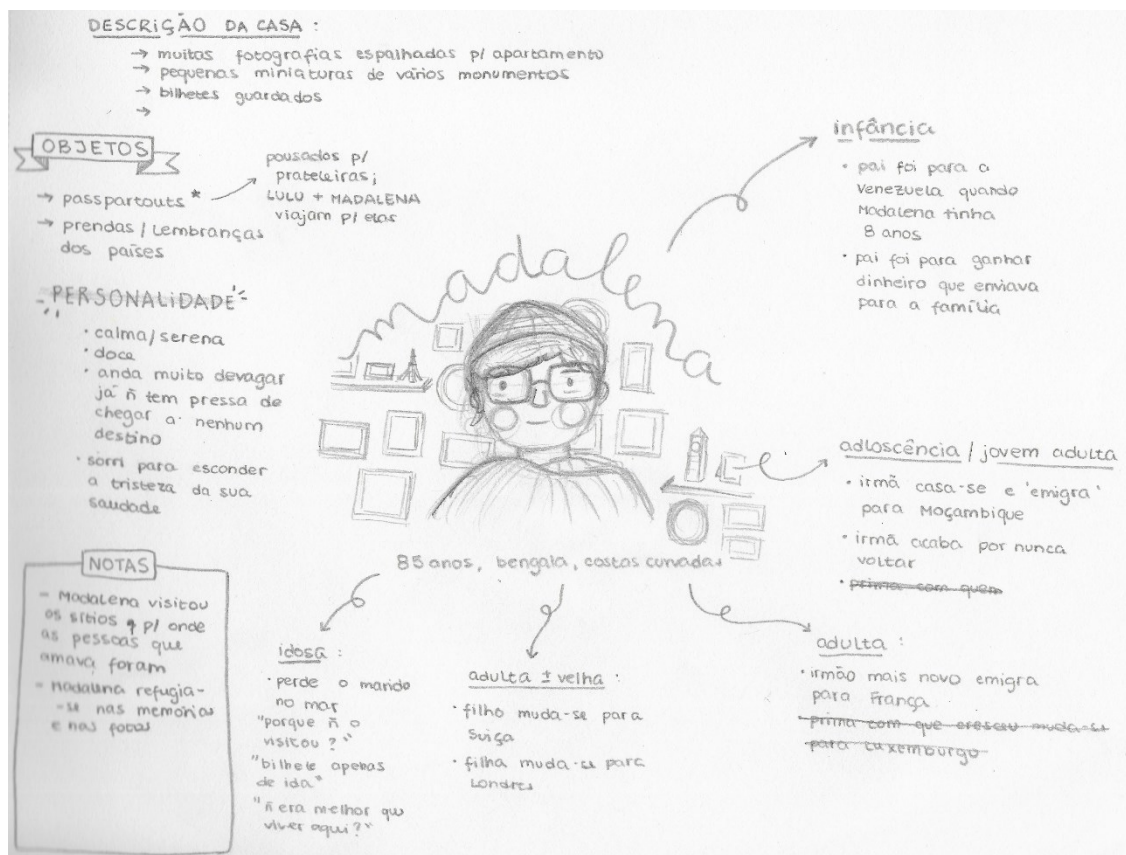 DESCRIÇÃO DA CASA :
→ muitas fotografias espalhadas p/ apartamento
→ pequenas miniaturas de vários monumentos
→ bilhetes guardados
→
OBJETOS
→ passpartouts *
→ prendas / lembranças
dos países
pousados p/
prateleiras;
LULU + MADALENA
viajam p/ elas
PERSONALIDADE
· calma/serena
· doce
· anda muito devagar
já ñ tem pressa de
chegar a nenhum
destino
· sorri para esconder
a tristeza da sua
saudade
NOTAS
- Madalena visitou
os sítios p/ onde
as pessoas que
amava foram
- Madalena refugia-
-se nas memórias
e nas fotos
madalena
85 anos, bengala, costas curvadas
infância
· pai foi para a
Venezuela quando
Madalena tinha
8 anos
· pai foi para ganhar
dinheiro que enviava
para a família
adloscência / jovem adulta
· irmã casa-se e 'emigra'
para Moçambique
· irmã acaba por nunca
voltar
· prima com quem
adulta :
· irmão mais novo emigra
para França
· prima com que cresceu muda-se
para Luxemburgo
adulta ± velha :
· filho muda-se para
Suiça
· filha muda-se para
Londres
idosa :
· perde o marido
no mar
"porque ñ o
visitou ?"
"bilhete apenas
de ida"
"ñ era melhor que
viver aqui ?"